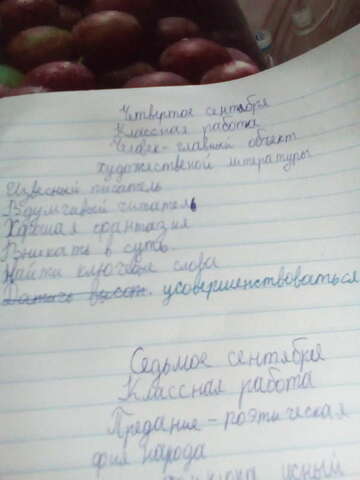 Четвертое сентября
Классная работа
Человек - главный объект
художественой литературы
Извесный писатель
Вдумчивый читатель
Хорошая фантазия
Вникать в суть
Найти ключевые слова
усовершенствоваться
Седьмое сентября
Классная работа
Предание - поэтическая
народа